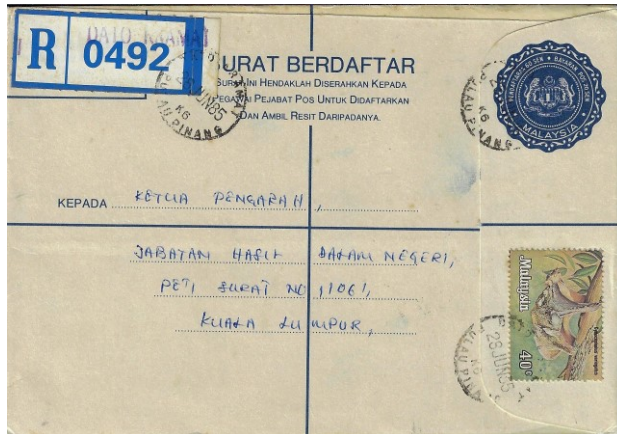 DATO KRAMAT
R 0492
SURAT BERDAFTAR
SURAT INI HENDAKLAH DISERAHKAN KEPADA
PEGAWAI PEJABAT POS UNTUK DIDAFTARKAN
DAN AMBIL RESIT DARIPADANYA.
K6
JUN85
PULAU PINANG
K6
PULAU PINANG
MALAYSIA
KEPADA KETUA PENGARAH,
JABATAN HASIL DALAM NEGERI,
PETI SURAT NO 11061,
KUALA LUMPUR,
Malaysia
40¢
K6
PULAU PIN